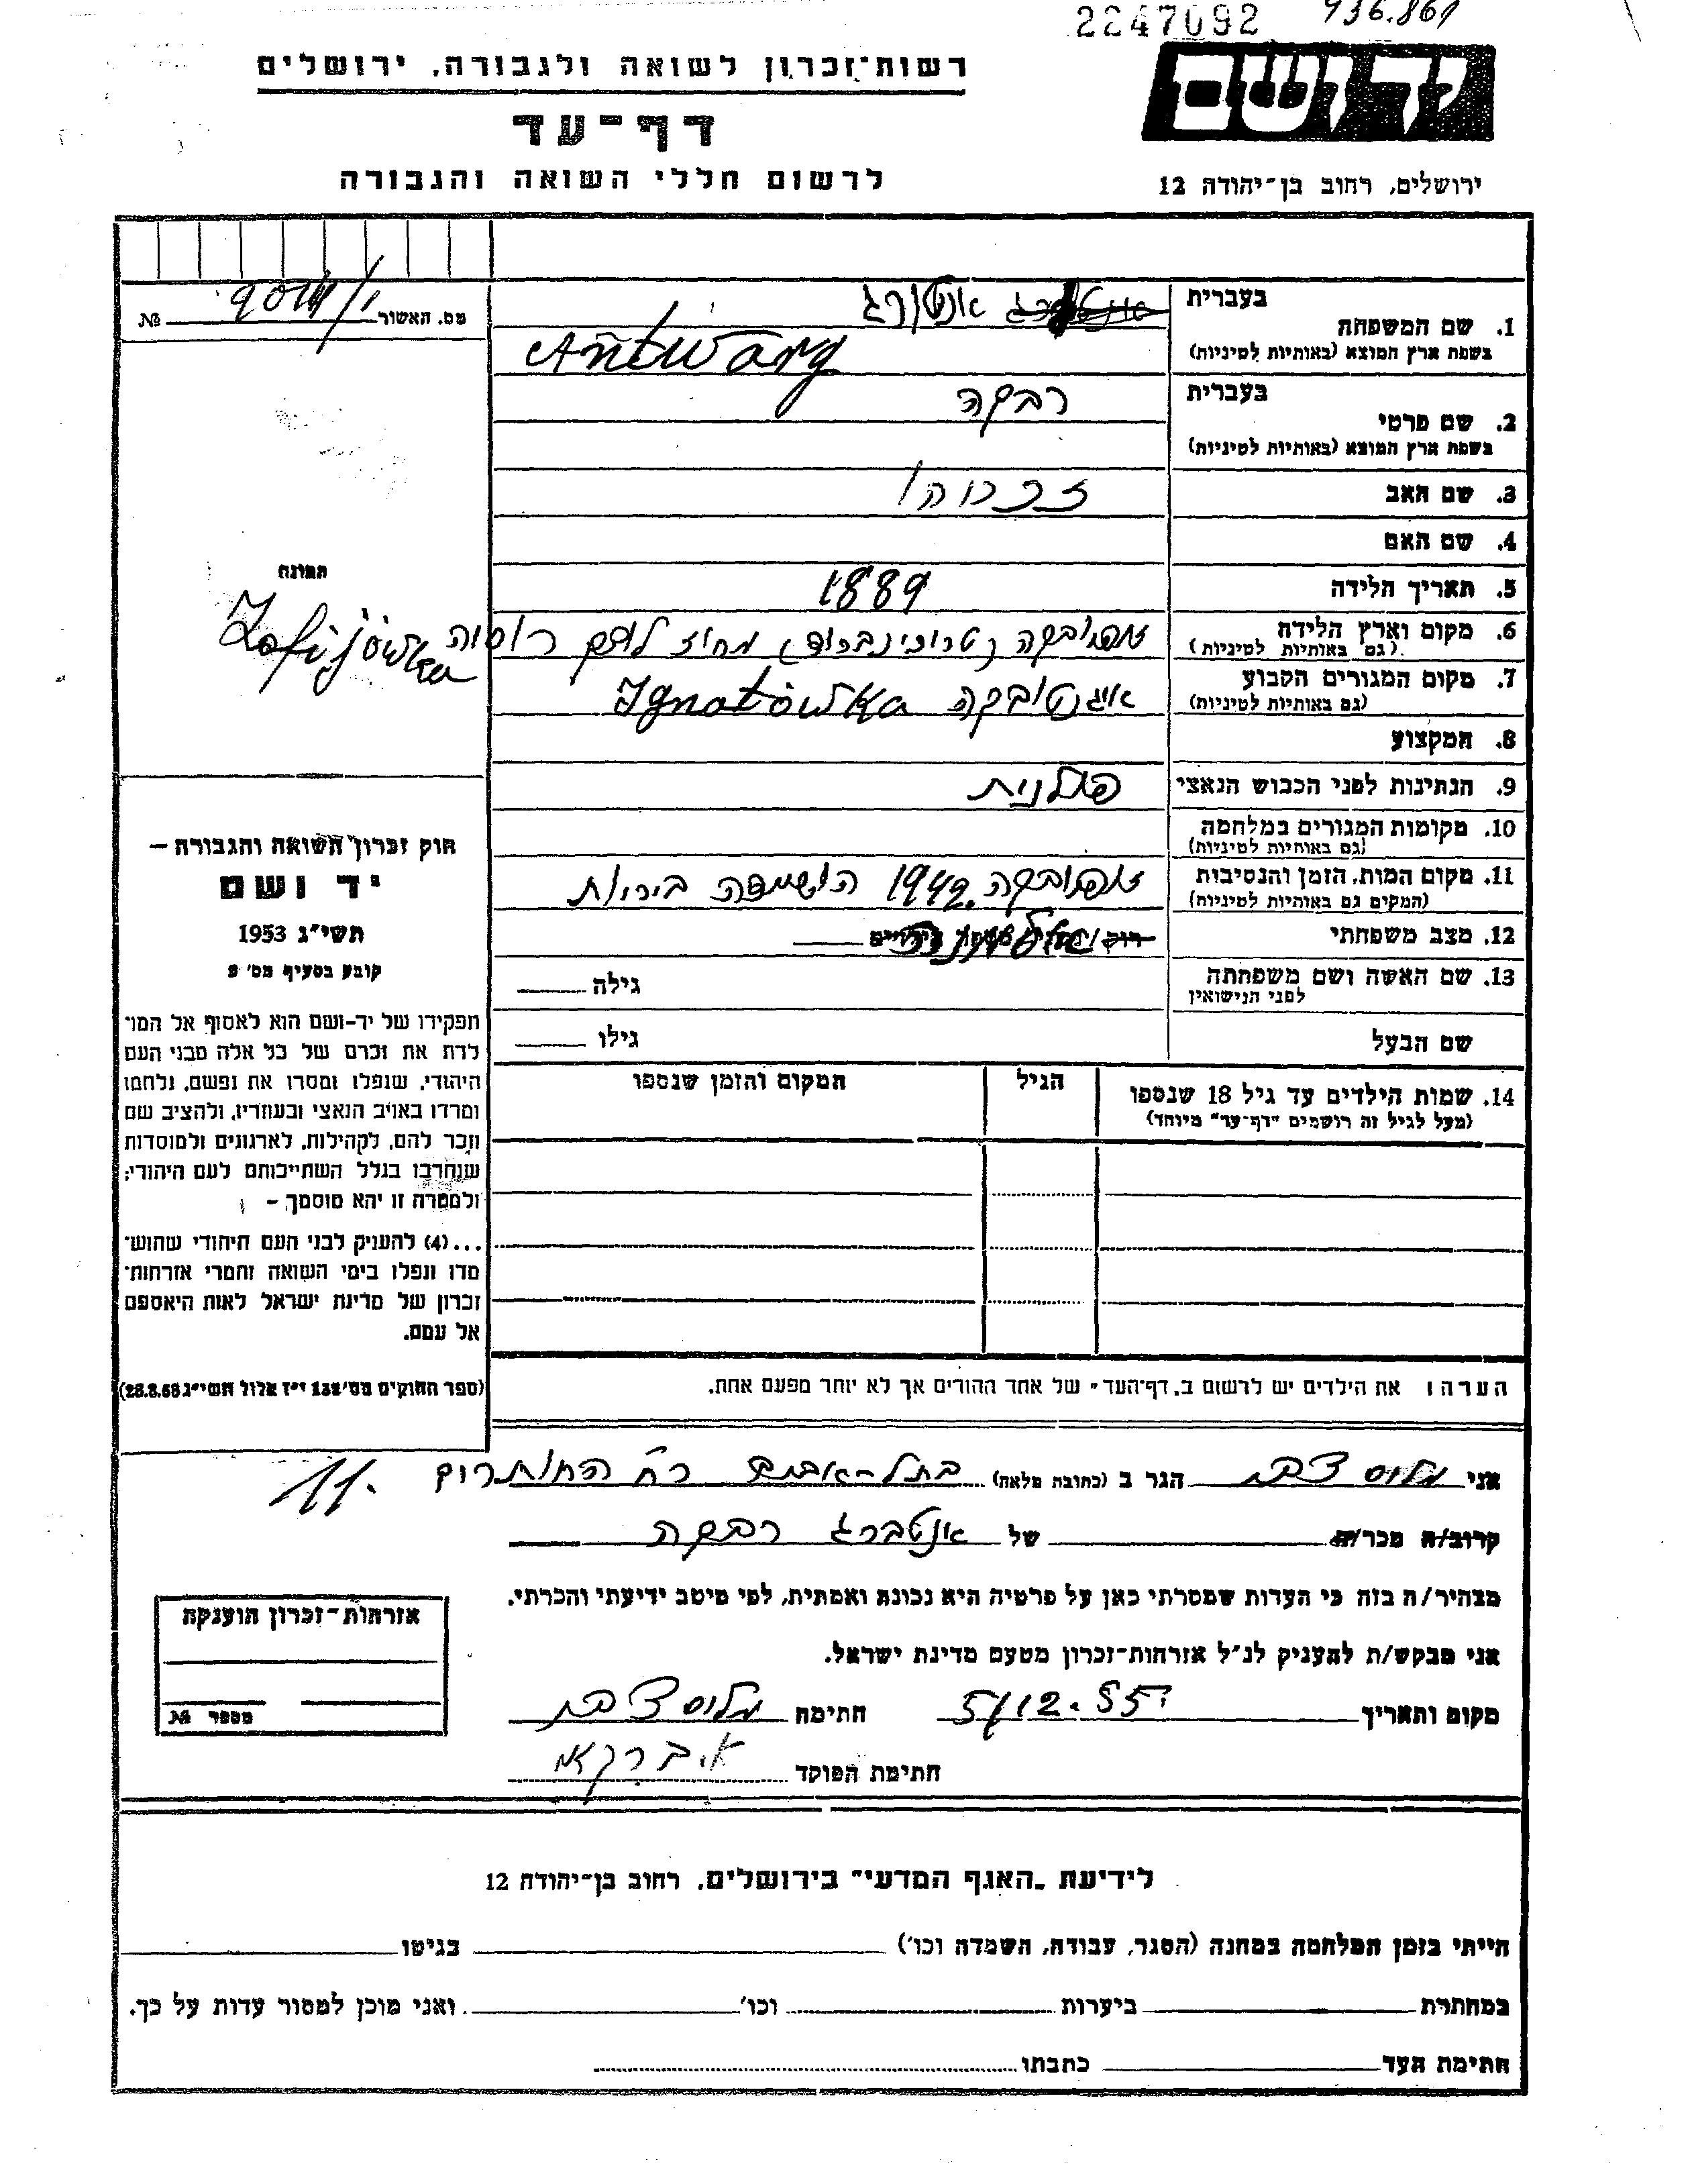 2247092 936.861
רשות־זכרון לשואה ולגבורה, ירושלים
יד ושם
דף־עד
לרשום חללי השואה והגבורה
ירושלים, רחוב בן־יהודה 12
מס. האשור № 
1. שם המשפחה
בעברית אנטורג
בשפת ארץ המוצא (באותיות לטיניות) Antwarg
2. שם פרטי
בעברית רבקה
בשפת ארץ המוצא (באותיות לטיניות)
3. שם האב
4. שם האם
5. תאריך הלידה 1889
6. מקום וארץ הלידה זופיובקה (טרוכינברוד) מחוז לוצק רוסיה Zofijówka
(גם באותיות לטיניות)
7. מקום המגורים הקבוע איגנטובקה Ignatówka
(גם באותיות לטיניות)
8. המקצוע
9. הנתינות לפני הכבוש הנאצי פולנית
10. מקומות המגורים במלחמה
(גם באותיות לטיניות)
11. מקום המות, הזמן והנסיבות זופיובקה 1942. הושמדה ביריות
(המקום גם באותיות לטיניות)
12. מצב משפחתי
13. שם האשה ושם משפחתה גילה
לפני הנישואין
שם הבעל גילו
14. שמות הילדים עד גיל 18 שנספו הגיל המקום והזמן שנספו
(מעל לגיל זה רושמים "דף־עד" מיוחד)
תמונה
חוק זכרון השואה והגבורה –
יד ושם
תשי"ג 1953
קובע בסעיף מס' 2
תפקידו של יד-ושם הוא לאסוף אל המו־
לדת את זכרם של כל אלה מבני העם
היהודי, שנפלו ומסרו את נפשם, נלחמו
ומרדו באויב הנאצי ובעוזריו, ולהציב שם
וזכר להם, לקהילות, לארגונים ולמוסדות
שנחרבו בגלל השתייכותם לעם היהודי;
ולמטרה זו יהא מוסמך –
...(4) להעניק לבני העם היהודי שהוש־
מדו ונפלו בימי השואה והמרי אזרחות־
זכרון של מדינת ישראל לאות היאספם
אל עמם.
(ספר החוקים מס' 132 י"ז אלול תשי"ג 28.8.53)
הערה: את הילדים יש לרשום ב"דף־העד" של אחד ההורים אך לא יותר מפעם אחת.
אני הגר ב (כתובת מלאה) בתל-אביב רח' 11.
קרוב/ה מכר/ה של אנטברג רבקה
מצהיר/ה בזה כי העדות שמסרתי כאן על פרטיה היא נכונה ואמתית, לפי מיטב ידיעתי והכרתי.
אני מבקש/ת להעניק לנ"ל אזרחות־זכרון מטעם מדינת ישראל.
מקום ותאריך 5/12.55 חתימה
חתימת הפוקד
אזרחות־זכרון הוענקה
מספר №
לידיעת "האגף המדעי" בירושלים, רחוב בן־יהודה 12
הייתי בזמן המלחמה במחנה (הסגר, עבודה, השמדה וכו') בגיטו
במחתרת ביערות וכו' ואני מוכן למסור עדות על כך.
חתימת העד כתבתו